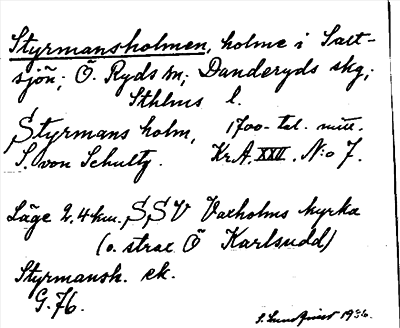 Styrmansholmen, holme i Salt-
sjön; Ö. Ryds sn; Danderyds skg;
Sthlms l.
Styrmans holm, 1700-tal. mitt.
S. von Schultz. Kr.A. XXII. N:o 7.
Läge 2,4 km. SSV Vaxholms kyrka
(o. strax Ö Karlsudd)
Styrmansh. ek.
G. 76.
S. Lundqvist 1936.